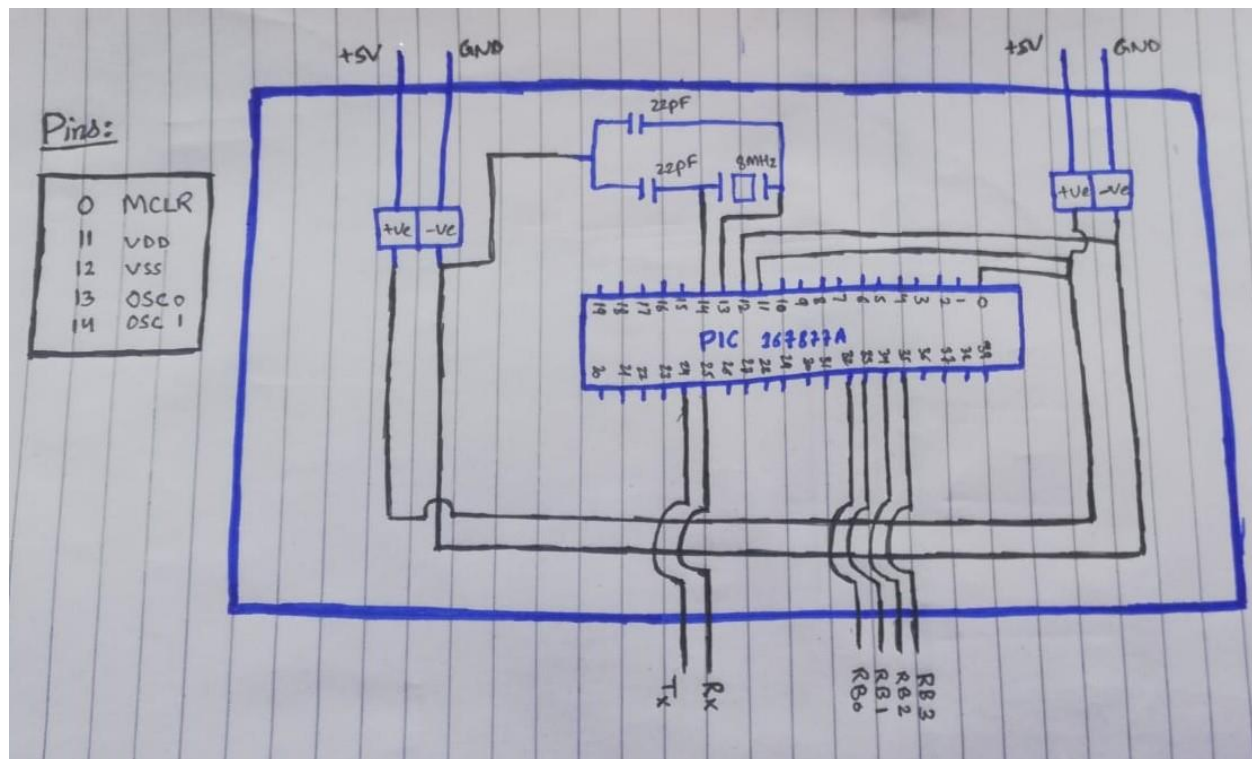 +5V GND
+5V GND
Pins:
0 MCLR
11 VDD
12 VSS
13 OSC0
14 OSC 1
22pF
22pF
8MHz
+ve -ve
+ve -ve
19 18 17 16 15 14 13 12 11 10 9 8 7 6 5 4 3 2 1 0
PIC 167877A
20 21 22 23 24 25 26 27 28 29 30 31 32 33 34 35 36 37 38 39
Tx
Rx
RB0
RB1
RB2
RB3